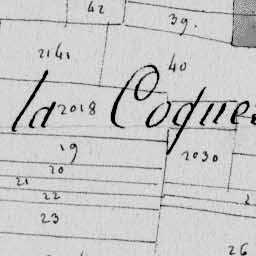 42
39.
2141
40
la 2018 Coque
19
2030
20
21
22
23
26